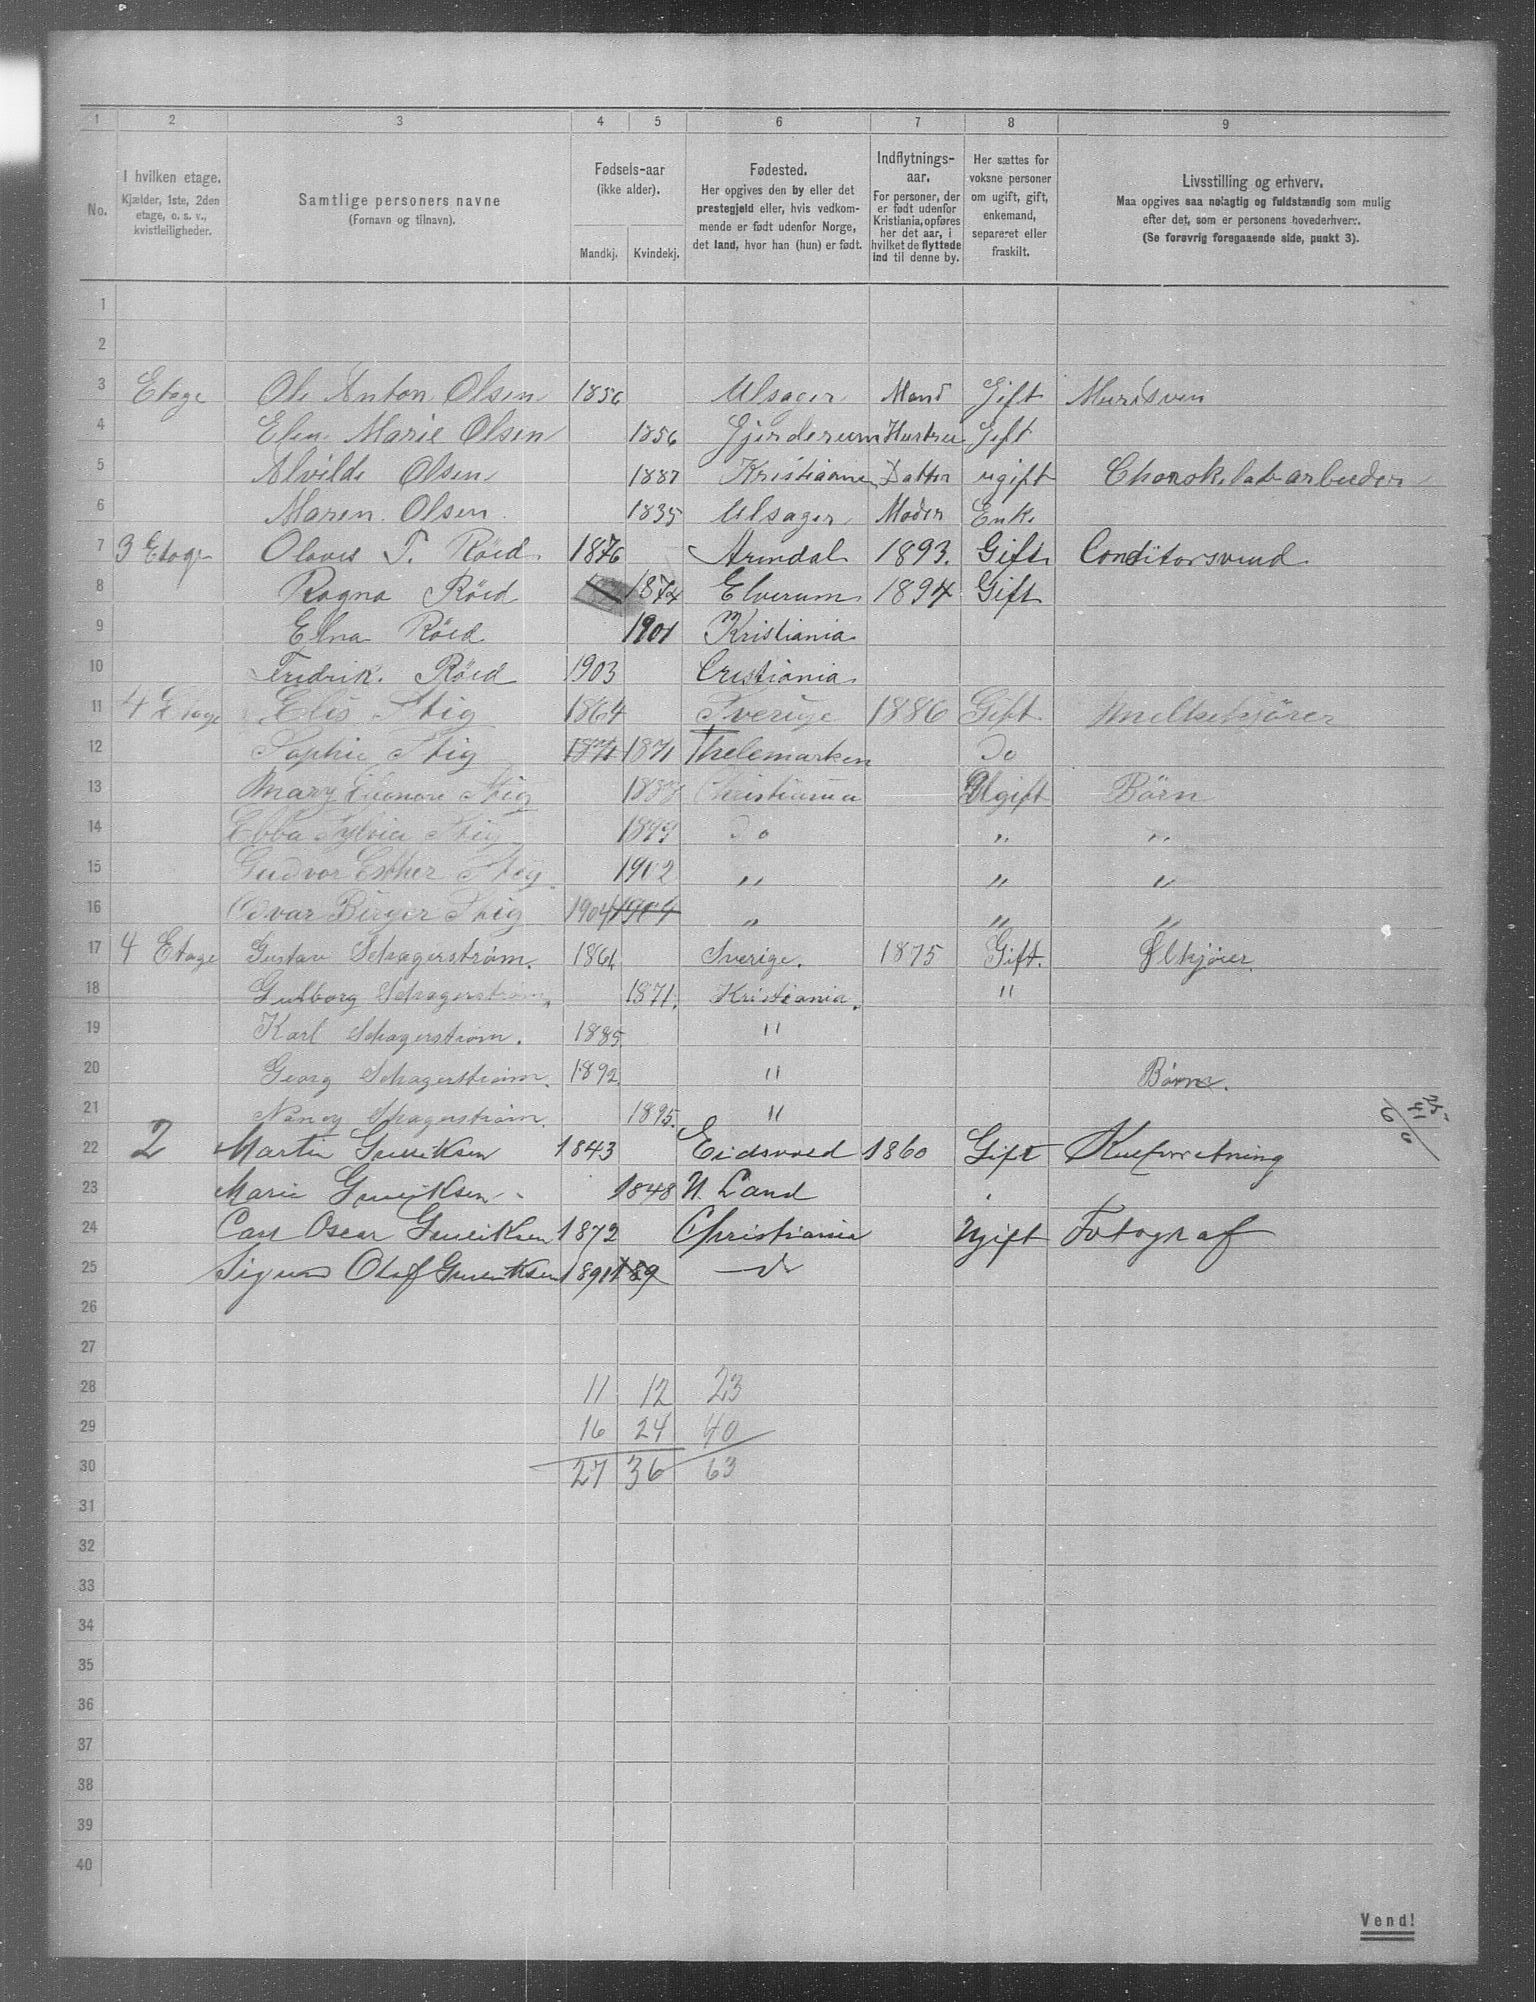 1 2 3 4 5 6 7 8 9
No.
I hvilken etage. Kjælder, 1ste, 2den etage, o. s. v., kvistleiligheder.
Samtlige personers navne (Fornavn og tilnavn).
Fødsels-aar (ikke alder).
Mandkj. Kvindekj.
Fødested. Her opgives den by eller det prestegjeld eller, hvis vedkommende er født udenfor Norge, det land, hvor han (hun) er født.
Indflytnings-aar. For personer, der er født udenfor Kristiania, opføres her det aar, i hvilket de flyttede ind til denne by.
Her sættes for voksne personer om ugift, gift, enkemand, separeret eller fraskilt.
Livsstilling og erhverv. Maa opgives saa nøiagtig og fuldstændig som mulig efter det, som er personens hovederhverv. (Se forøvrig foregaaende side, punkt 3).
1
2
3 Etage Ole Anton Olsen 1856 Ulsager Mand Gift Mursven
4 Elen Marie Olsen 1856 Gjerderum Hustru Gift
5 Alvilde Olsen 1887 Kristiania Datter ugift
6 Maren Olsen 1835 Ulsager Moder Enke
7 3 Etage Olaves T. Röed 1876 Arendal 1893. Gift Conditorsvend
8 Ragna Röed 1874 Elverum 1894 Gift
9 Elna Röed 1901 Kristiania
10 Fredrik. Röed 1903 Cristiania
11 4 Etage Elis Stig 1864 Sverige 1886 Gift Melkekjører
12 Sophie Stig 1871 1871 Thelemarken Do
13 Mary Eleonore Stig Christiania Ugift Börn
14 Ebba Sylvia Stig 1899 Do " "
15 Gudvor Esther Stig 1902 " " "
16 Odvar Birger Stig 1904 1904 " " "
17 4 Etage Gustav Schagerstrøm. 1861 Sverige. 1875 Gift. Ølkjører
18 Gulborg Schagerstrøm 1871. Kristiania. "
19 Karl Schagerstrøm. 1885 "
20 Georg Schagerstrøm. 1892 " Børn.
21 Nancy Schagerstrøm. 1895. "
22 2 Martin 1843 Eidsvold 1860 Gift Kulforretning
23 Marie 1848 N. Land
24 Carl Oscar 1872 Christiania Ugift Fotograf
25 Olaf 1891 189 do
26
27
28 11 12 23
29 16 24 40
30 27 36 63
31
32
33
34
35
36
37
38
39
40
Vend!